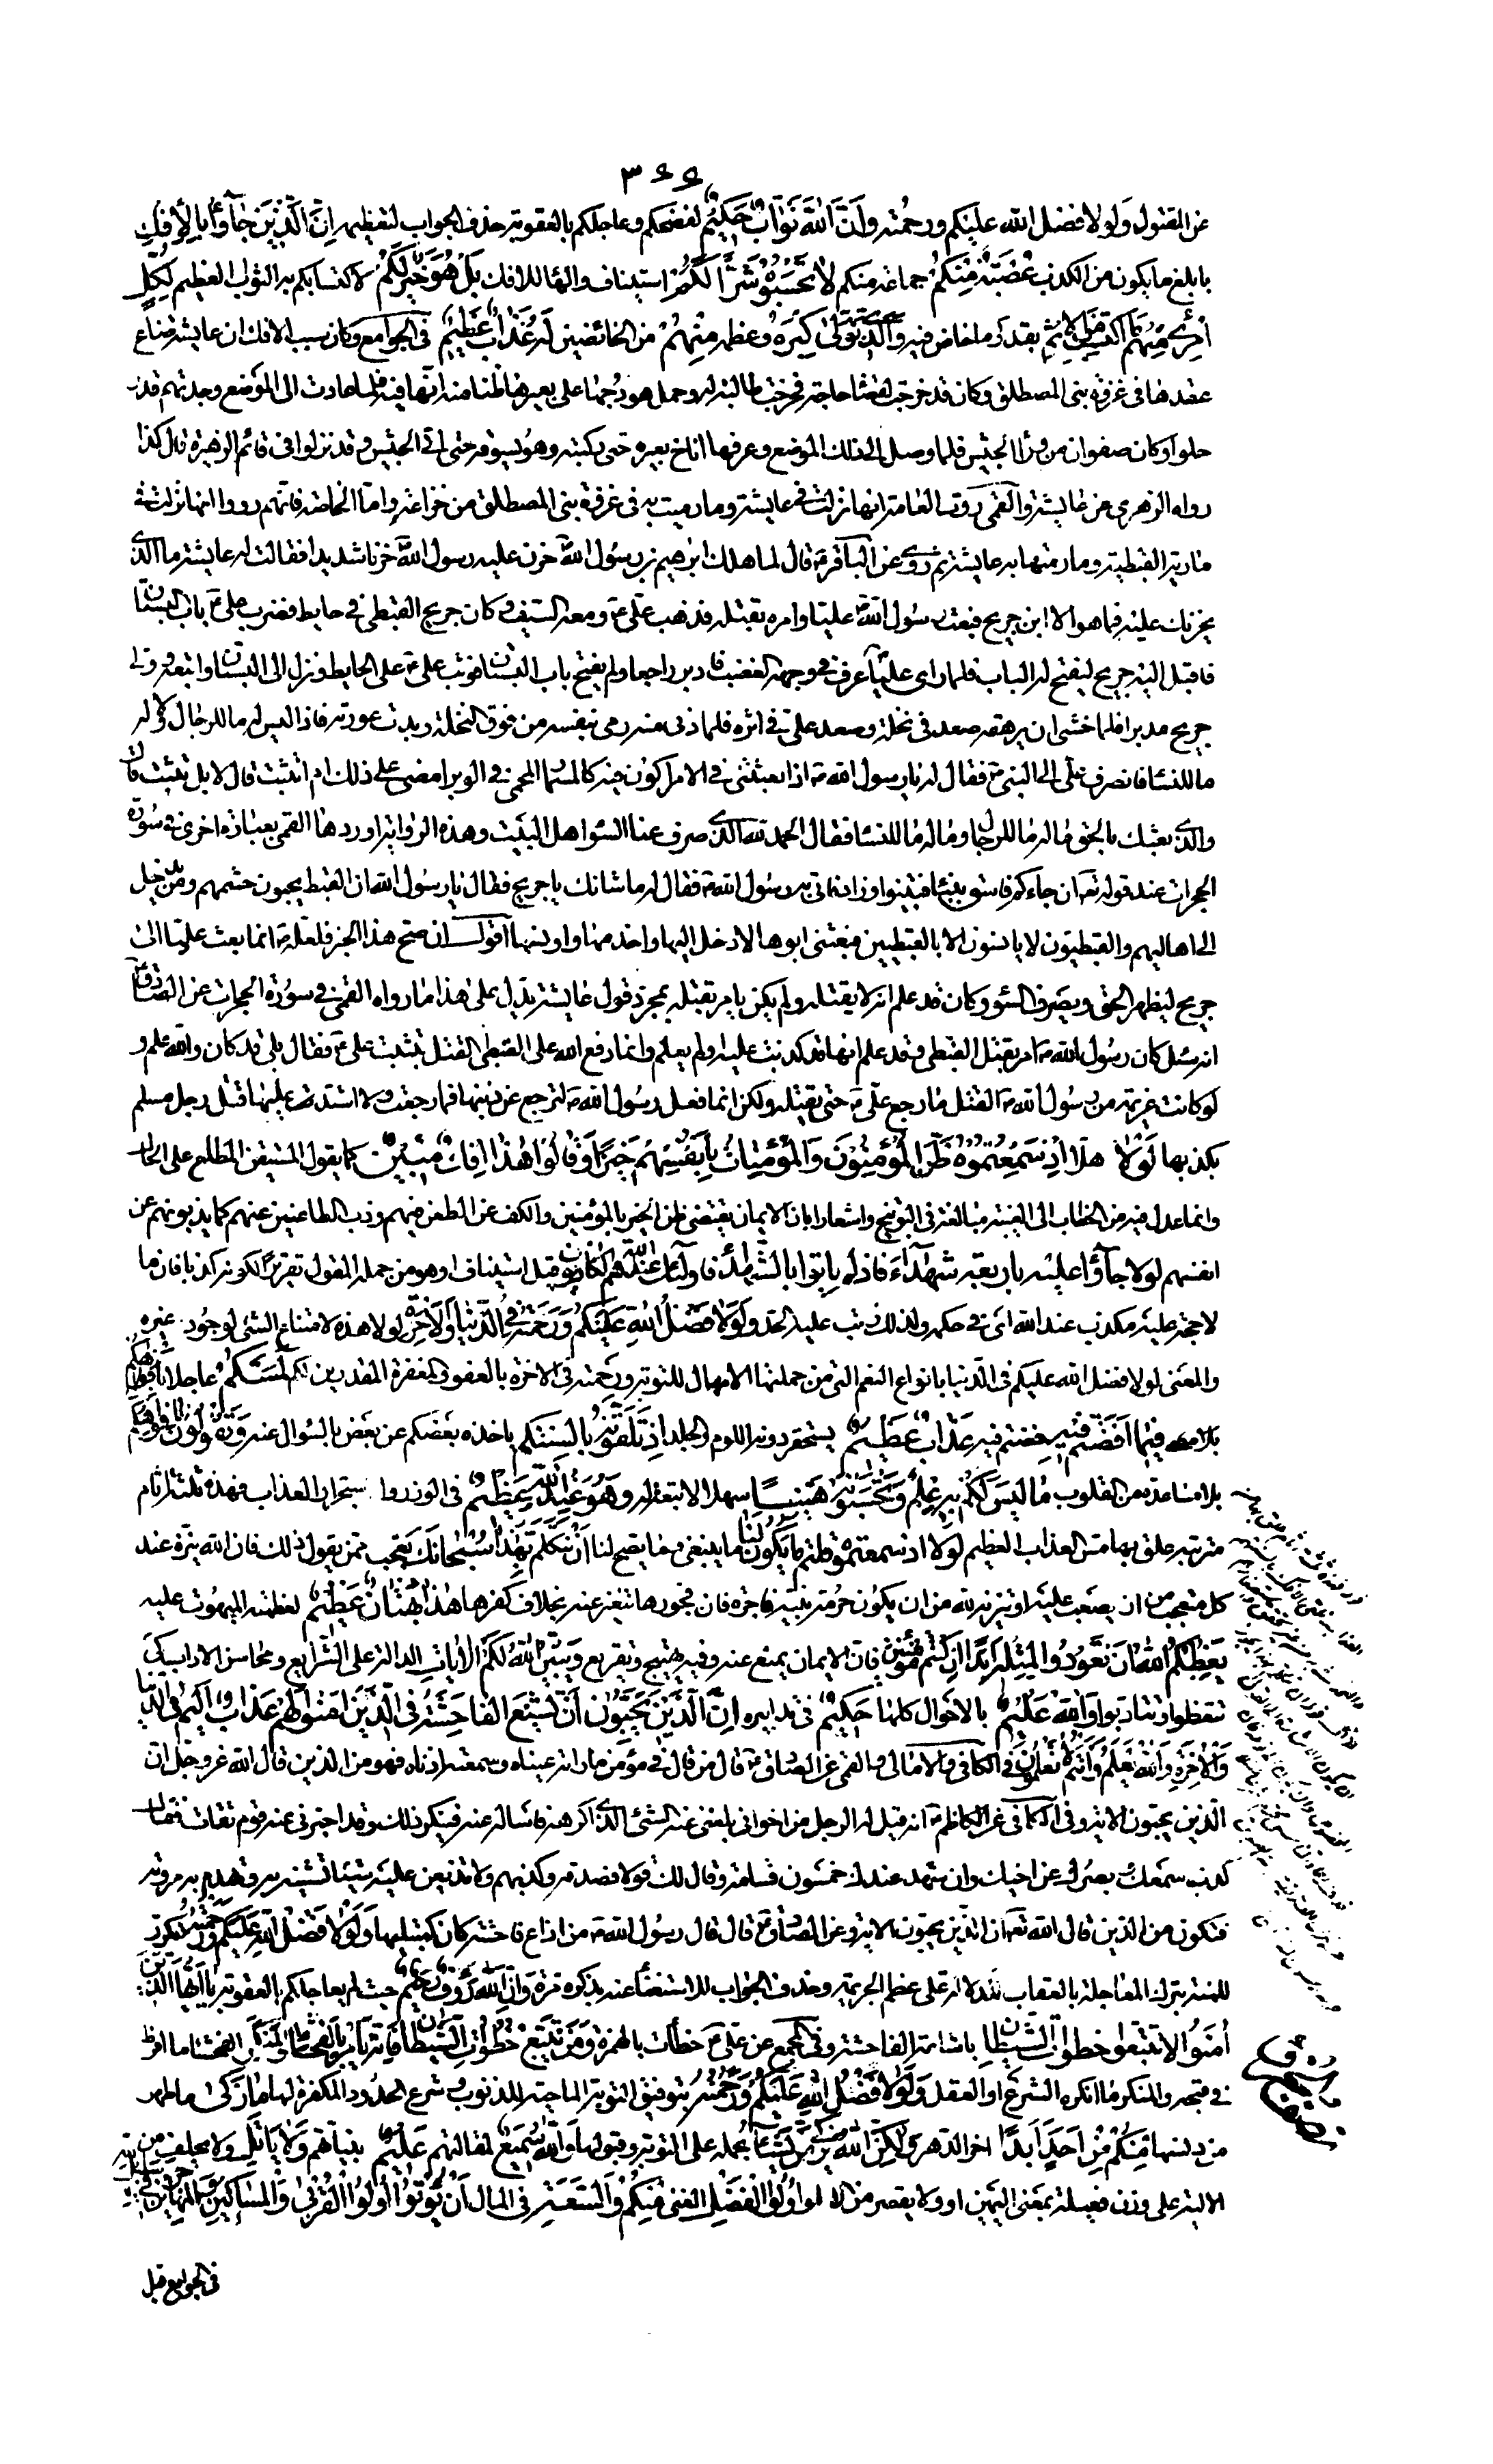 ٣٦٦
عن المقتول وَلَولا فضل الله عليكم ورحمته وأنّ الله توّابٌ حكيمٌ لفضحكم وعاجلكم بالعقوبة حذف الجواب لتعظيمه إنّ الّذين جاؤا بالإفك
بابلغ ما يكون من الكذب عصبةٌ منكم جماعة منكم لا تحسبوه شرّاً لكم استيناف والهاء للافك بل هو خيرٌ لكم لاكتسابكم به الثواب العظيم لكلّ
امرئٍ منهم ما اكتسب من الإثم بقدر ما خاض فيه والّذي تولّى كبره وعظمه منهم من الخائضين له عذابٌ عظيمٌ في الجوامع وكان سبب الافك ان عايشة ضاع
عقدها في غزوة بني المصطلق وكانت قد خرجت لقضاء حاجة فخرجت طالبة له وحمل هودجها على بعيرها ظنا منهم انها فيه فلما عادت الى الموضع وجدتهم قد
حلوا وكان صفوان من وراء الجيش فلما وصل الى ذلك الموضع وعرفها اناخ بعيره حتى ركبته وهو يسوقه حتى اتى الجيش وقد نزلوا في قائم الظهيرة قال كذا
رواه الزهري عن عايشة والقمي روت العامة انها نزلت في عايشة وما رميت به في غزوة بني المصطلق من خزاعة واما الخاصة فانهم رووا انها نزلت في
مارية القبطية وما رمتها به عايشة ثم روى عن الباقر ع قال لما هلك ابرهيم بن رسول الله ص حزن عليه رسول الله ص حزنا شديدا فقالت له عايشة ما الذي
يحزنك عليه فما هو الا ابن جريح فبعث رسول الله ص عليا وامره بقتله فذهب علي ع ومعه السيف وكان جريح القبطي في حايط فضرب علي ع باب البستان
فاقبل اليه جريح ليفتح له الباب فلما راى عليا ع عرف في وجهه الغضب فادبر راجعا ولم يفتح باب البستان فوثب علي ع على الحايط ونزل الى البستان واتبعه وولى
جريح مدبرا فلما خشي ان يرهقه صعد في نخلة وصعد علي ع في اثره فلما دنى منه رمى بنفسه من فوق النخلة فبدت عورته فاذا ليس له ما للرجال ولا له
ما للنساء فانصرف علي الى النبي ص فقال له يا رسول الله ص اذا بعثتني في الامر اكون فيه كالمسمار المحمى في الوبر امضي على ذلك ام اتثبت قال لا بل تثبت قال
والذي بعثك بالحق ما له ما للرجال وما له ما للنساء فقال الحمد لله الذي صرف عنا السوء اهل البيت وهذه الرواية اوردها القمي بعبارة اخرى في سورة
الحجرات عند قوله تعالى ان جاءكم فاسق بنبأ فتبينوا وزاد فاتى به رسول الله ص فقال له ما شانك يا جريح فقال يا رسول الله ان القبط يحبون حشمهم ومن يدخل
الى اهاليهم والقبطيون لا يانسون الا بالقبطيين فبعثني ابوها لادخل اليها واخدمها واونسها اقول ان صح هذا الخبر فلعله ص انما بعث عليا الى
جريح ليظهر الحق ويصرف السوء وكان قد علم انه لا يقتله ولم يكن يامر بقتله بمجرد قول عايشة يدل على هذا ما رواه القمي في سورة الحجرات عن الصادق ع
انه سئل كان رسول الله ص امر بقتل القبطي وقد علم انها قد كذبت عليه او لم يعلم وانما دفع الله عن القبطي القتل بتثبت علي ع فقال بلى قد كان والله علم و
لو كانت عزيمة من رسول الله ص القتل ما رجع علي ع حتى يقتله ولكن انما فعل رسول الله ص لترجع عن ذنبها فما رجعت ولا اشتد عليها قتل رجل مسلم
بكذبها لولا هلا إذ سمعتموه ظنّ المؤمنون والمؤمنات بأنفسهم خيراً وقالوا هذا إفكٌ مبينٌ كما يقول المستيقن المطلع على الحال
وانما عدل فيه من الخطاب الى الغيبة مبالغة في التوبيخ واشعارا بان الايمان يقتضي ظن الخير بالمؤمنين والكف عن الطعن فيهم وذب الطاعنين عنهم كما يذبونهم عن
انفسهم لولا جاؤا عليه باربعة شهداء فاذ لم ياتوا بالشهداء فاولئك عند الله هم الكاذبون قيل استيناف او هو من جملة المقول تقريرا لكونه كذبا فان ما
لا حجة عليه مكذب عند الله اى في حكمه ولذلك رتب عليه الحد ولولا فضل الله عليكم ورحمته في الدنيا والآخرة لولا هذه لامتناع الشئ لوجود غيره
والمعنى لولا فضل الله عليكم في الدنيا بانواع النعم التي من جملتها الامهال للتوبة ورحمته في الاخرة بالعفو والمغفرة المقدرين لكم لمسّكم عاجلا
فيما أفضتم فيه خضتم فيه عذابٌ عظيمٌ يستحقر دونه اللوم والجلد إذ تلقّونه بألسنتكم ياخذه بعضكم عن بعض بالسؤال عنه وتقولون بأفواهكم
بلا مساعدة من القلوب ما ليس لكم به علمٌ وتحسبونه هيّناً سهلا لا تبعة له وهو عند الله عظيمٌ في الوزر واستجرار العذاب فهذه ثلثة اثام
مترتبة علق بها مس العذاب العظيم لولا اذ سمعتموه قلتم ما يكون لنا ما ينبغي وما يصح لنا أن نتكلّم بهذا سبحانك تعجب ممن يقول ذلك فان الله ينزه عند
كل متعجب من ان يصعب عليه او تنزيه لله من ان يكون حرمة نبيه فاجرة فان فجورها تنفير عنه بخلاف كفرها هذا بهتانٌ عظيمٌ لعظمة المبهوت عليه
يعظكم الله أن تعودوا لمثله أبداً إن كنتم مؤمنين فان الايمان يمنع عنه وفيه تهييج وتقريع ويبيّن الله لكم الآيات الدالة على الشرايع ومحاسن الاداب كي
تتعظوا وتتادبوا والله عليمٌ بالاحوال كلها حكيمٌ في تدابيره إنّ الّذين يحبّون أن تشيع الفاحشة في الّذين امنوا لهم عذابٌ أليمٌ في الدّنيا
والآخرة والله يعلم وأنتم لا تعلمون في الكافي والامالي والقمي عن الصادق ع قال من قال في مؤمن ما راته عيناه وسمعته اذناه فهو من الذين قال الله عز وجل ان
الذين يحبون الاية وفي الكافي عن الكاظم ع انه قيل له الرجل من اخواني بلغني عنه الشئ الذي اكرهه فاساله عنه فينكر ذلك وقد اخبرني عنه قوم ثقات فقال
كذب سمعك وبصرك عن اخيك وان شهد عندك خمسون قسامة وقال لك قولا فصدقه وكذبهم ولا تذيعن عليه شيئا تشينه به وتهدم به مروته
فتكون من الذين قال الله تعالى ان الذين يحبون الاية وعن الصادق ع قال قال رسول الله ص من اذاع فاحشة كان كمبتديها ولولا فضل الله عليكم ورحمته تكرير
للمنة بترك المعاجلة بالعقاب للدلالة على عظم الجريمة وحذف الجواب للاستغناء عنه بذكره مرة وأنّ الله رؤفٌ رحيمٌ حيث لم يعاجلكم بالعقوبة يا أيها الّذين
آمنوا لا تتّبعوا خطوات الشّيطان باشاعة الفاحشة وفي المجمع عن علي ع خطأت بالهمزة ومن يتّبع خطوات الشّيطان فإنه يأمر بالفحشاء والمنكر الفحشاء ما افرط
في قبحه والمنكر ما انكره الشرع او العقل ولولا فضل الله عليكم ورحمته بتوفيق التوبة الماحية للذنوب وشرع الحدود المكفرة لها ما زكى ما طهر
من دنسها منكم من أحدٍ أبداً اخر الدهر ولكنّ الله يزكّي من يشاء بحمله على التوبة وقبولها والله سميعٌ لمقالتهم عليمٌ بنياتهم ولا يأتل ولا يحلف من
الالية على وزن فعيلة بمعنى اليمين او ولا يقصر من الالو أولوا الفضل الغنى منكم والسّعة في المال أن يؤتوا أولوا القربى والمساكين والمهاجرين في
في الجوامع قيل